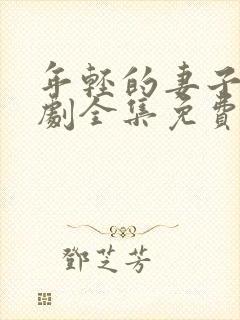 年轻的妻子
劇全集免費
鄧芝芳